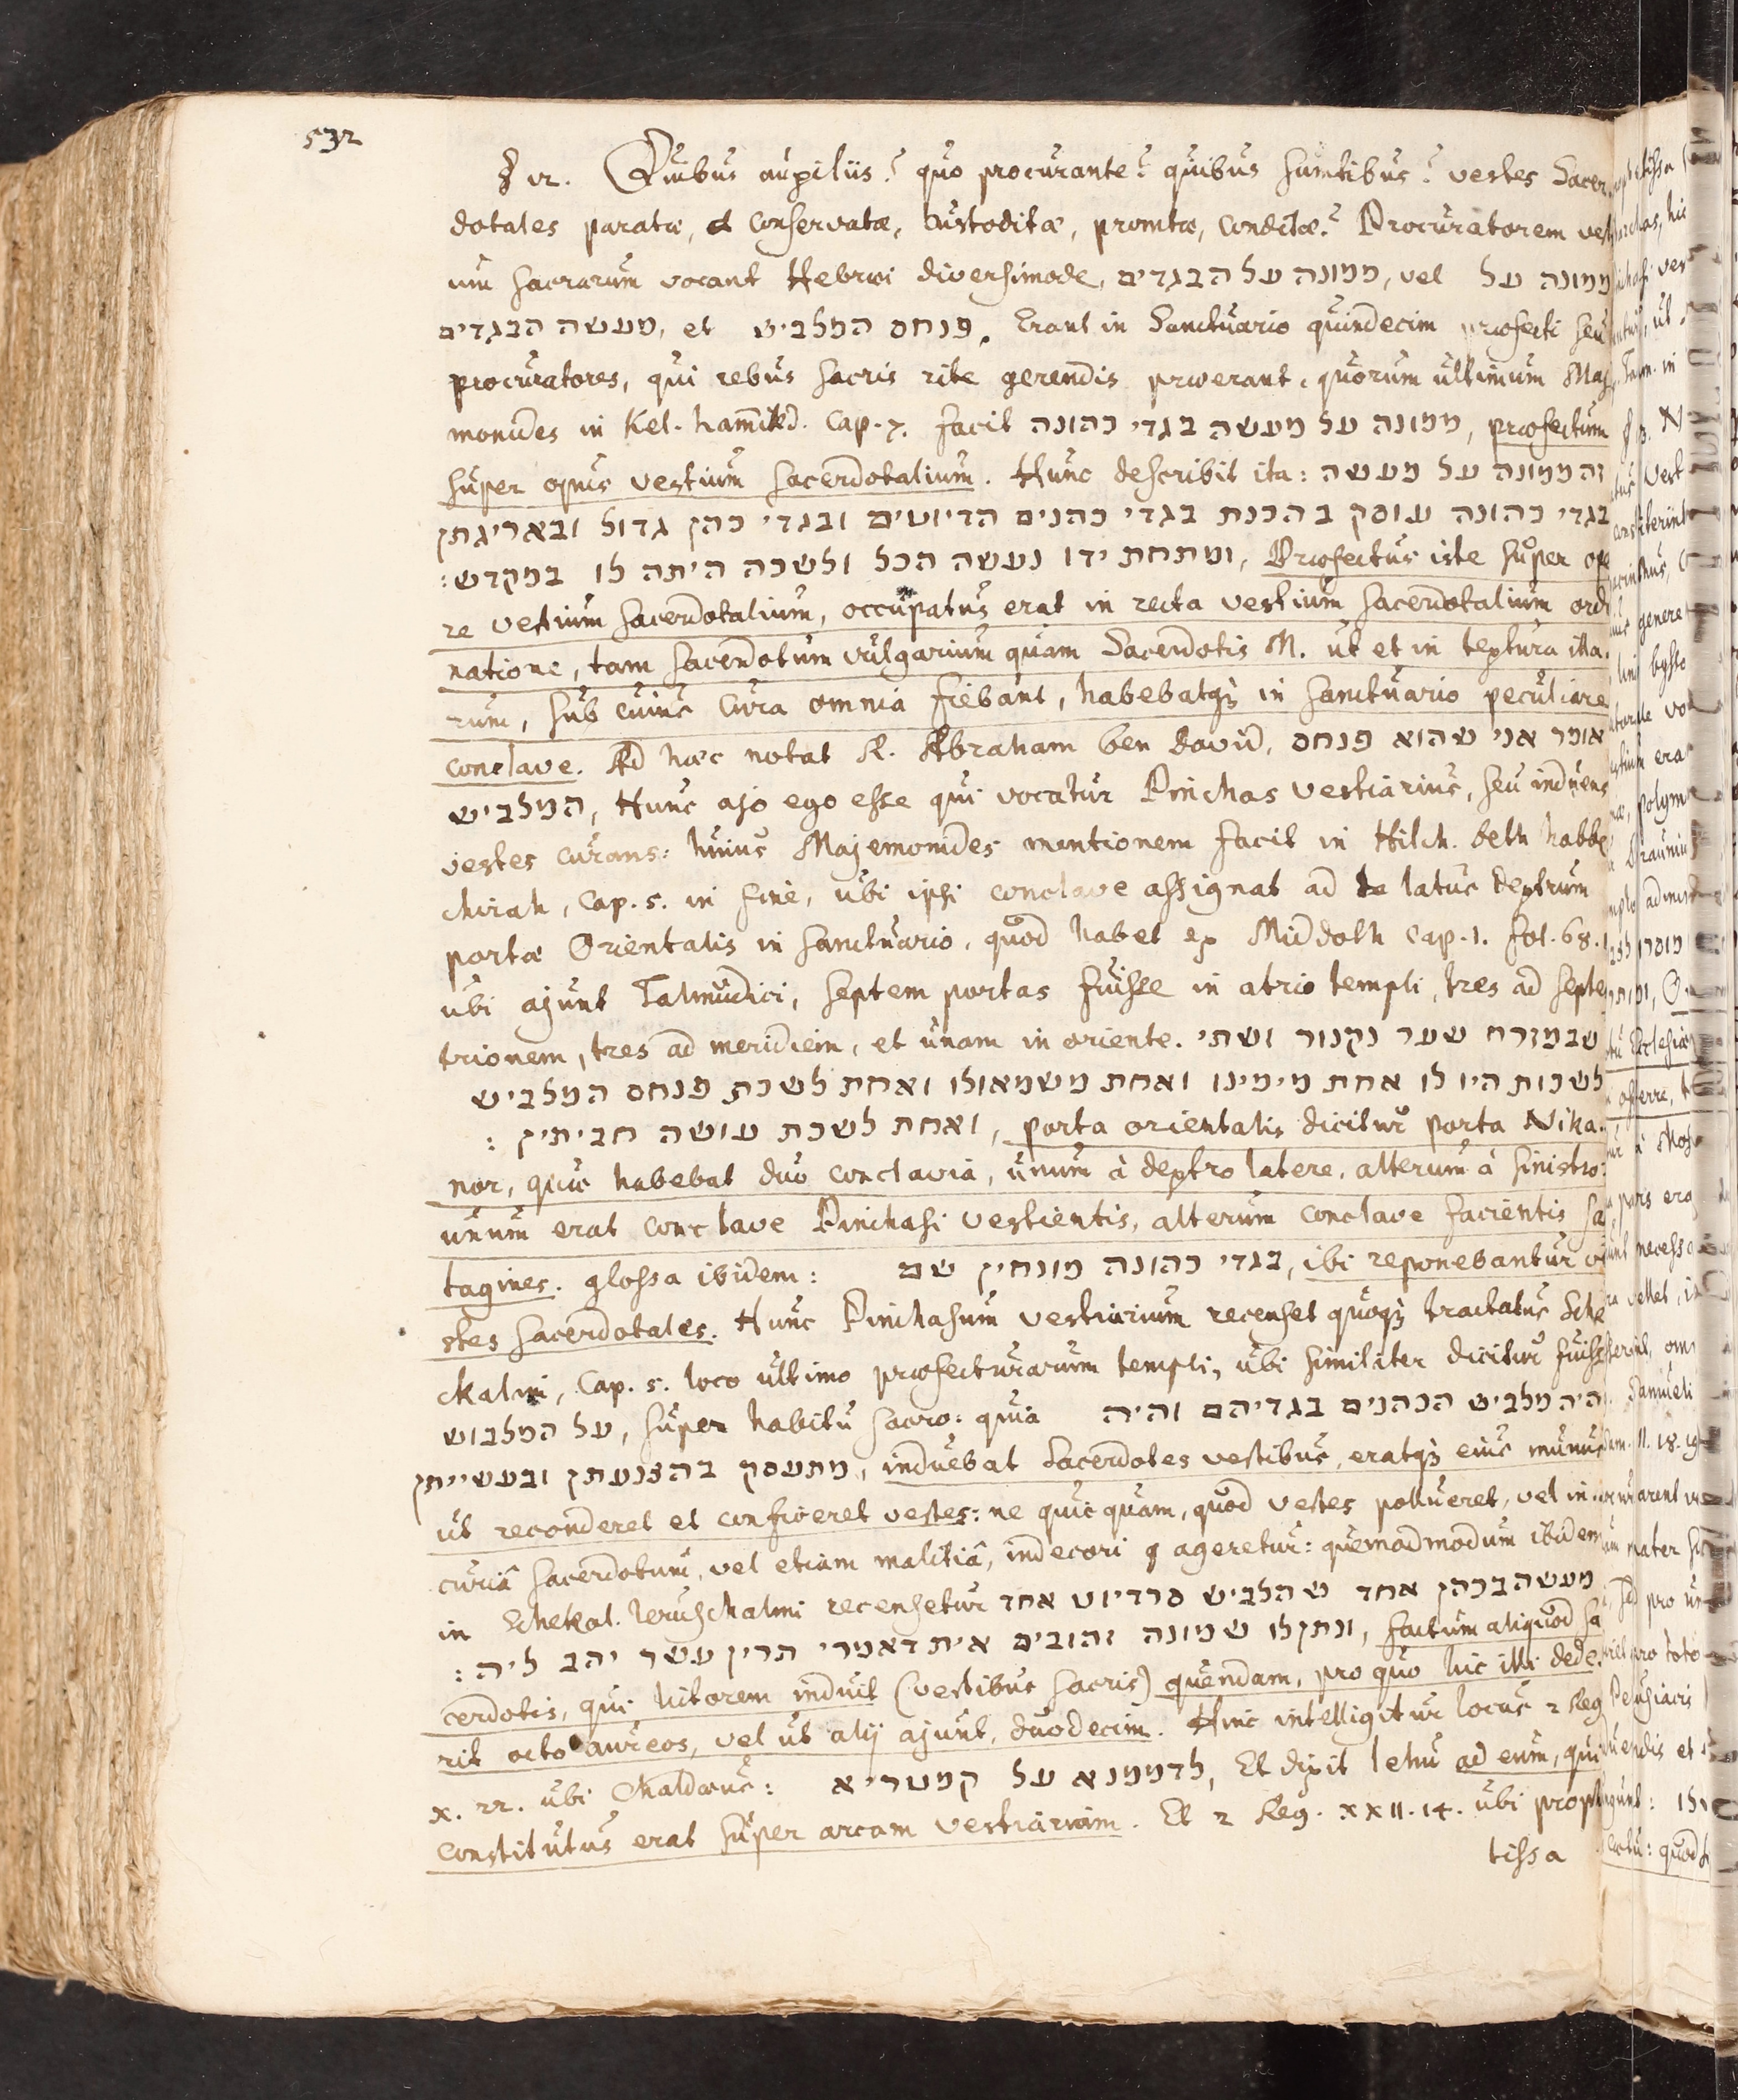 532
§ 12. Quibus auxiliis? quo procurante? quibus sumtibus? vestes Sacer
dotales paratæ, et conservatæ, custoditæ, promtæ, conditæ? Procuratorem vest
ium sacrarum vocant Hebræi diversimode, ממונה על הבגדים, vel ממונה על
מעשה הבגדים, et פנחס המלביש. Erant in Sanctuario quindecim præfecti seu
procuratores, qui rebus sacris rite gerendis præerant, quorum ultimum Maj
monides in Kel. hammikd. Cap. 7. facit ממונה על מעשה בגדי כהונה, præfectum
super opus vestium sacerdotalium. Hunc describit ita: זה הממונה על מעשה
בגדי כהונה עוסק בהכנת בגדי כהנים הדיוטים ובגדי כהן גדול ובאריגתן
ומתחת ידו נעשה הכל ולשכה היתה לו במקדש:, Præfectus iste super ope
re vestium sacerdotalium, occupatus erat in recta vestium sacerdotalium ordi
natione, tam sacerdotum vulgarium quam Sacerdotis M. ut et in textura illa-
rum, sub cuius cura omnia fiebant, habebatq; in sanctuario peculiare
conclave. Ad hæc notat R. Abraham ben David, אומר אני שהוא פנחס
המלביש, Hunc ajo ego esse qui vocatur Pinchas vestiarius, seu induens
vestes curans: huius Majemonides mentionem facit in Hilch. beth habbe
chirah, Cap. 5. in fine, ubi ipsi conclave assignat ad latus dextrum
portæ Orientalis in sanctuario, quod habet ex Middoth Cap. 1. fol. 68.
ubi ajunt Talmudici, septem portas fuisse in atrio templi, tres ad septen
trionem, tres ad meridiem, et unam in oriente. שבמזרח שער נקנור ושתי
לשכות היו לו אחת מימינו ואחת משמאולו ואחת לשכת פנחס המלביש
ואחת לשכת עושה חביתין :, porta orientalis dicitur porta Nika-
nor, quæ habebat duo conclavia, unum à dextro latere, alterum à sinistro:
unum erat conclave Pinchasi vestientis, alterum conclave facientis sa
tagines. glossa ibidem: בגדי כהונה מונחין שם, ibi reponebantur ve
stes sacerdotales. Hunc Pinchasum vestiarium recenset quoq; tractatus Sche
ckalim, Cap. 5. loco ultimo præfecturarum templi, ubi similiter dicitur fuisse
על המלבוש, super habitu sacro: quia היה מלביש הכהנים בגדיהם והיה
מתעסק בהצנעתן ובעשייתן, induebat Sacerdotes vestibus, eratq; eius munus
ut reconderet et conficeret vestes: ne quicquam, quod vestes pollueret, vel in
curiâ sacerdotum, vel etiam malitiâ, indecori ageretur: quemadmodum ibidem
in Schekal. Jeruschalmi recensetur מעשה בכהן אחד שהלביש סרדיוט אחד
ונתן לו שמונה זהובים אית דאמרי תרין עשר יהב ליה :, factum aliquod sa
cerdotis, qui lictorem induit (vestibus sacris) quendam, pro quo hic illi dede-
rit octo aureos, vel ut alij ajunt, duodecim. Hinc intelligitur locus 2 Reg
X. 22. ubi Chaldæus: לדממנא על קמטריא, Et dixit Iehu ad eum, qui
constitutus erat super arcam vestiariam. Et 2 Reg. XXII. 14. ubi prophe
tissa